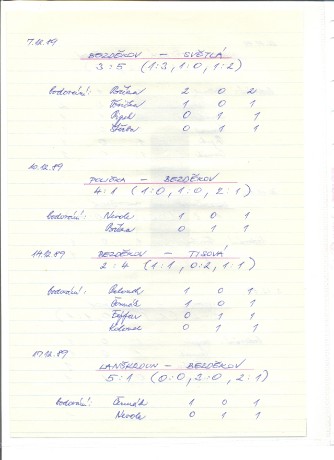 7.12.89
BEZDĚKOV – SVĚTLÁ
3:5 (1:3, 1:0, 1:2)
Bodování: 2 0 2
1 0 1
0 1 1
0 1 1
10.12.89
POLIČKA – BEZDĚKOV
4:1 (1:0, 1:0, 2:1)
Bodování: Nevole 1 0 1
0 1 1
14.12.89
BEZDĚKOV – TISOVÁ
2:4 (1:1, 0:2, 1:1)
Bodování: 1 0 1
Čermák 1 0 1
0 1 1
0 1 1
17.12.89
LANŠKROUN – BEZDĚKOV
5:1 (0:0, 3:0, 2:1)
Bodování: Čermák 1 0 1
Nevole 0 1 1